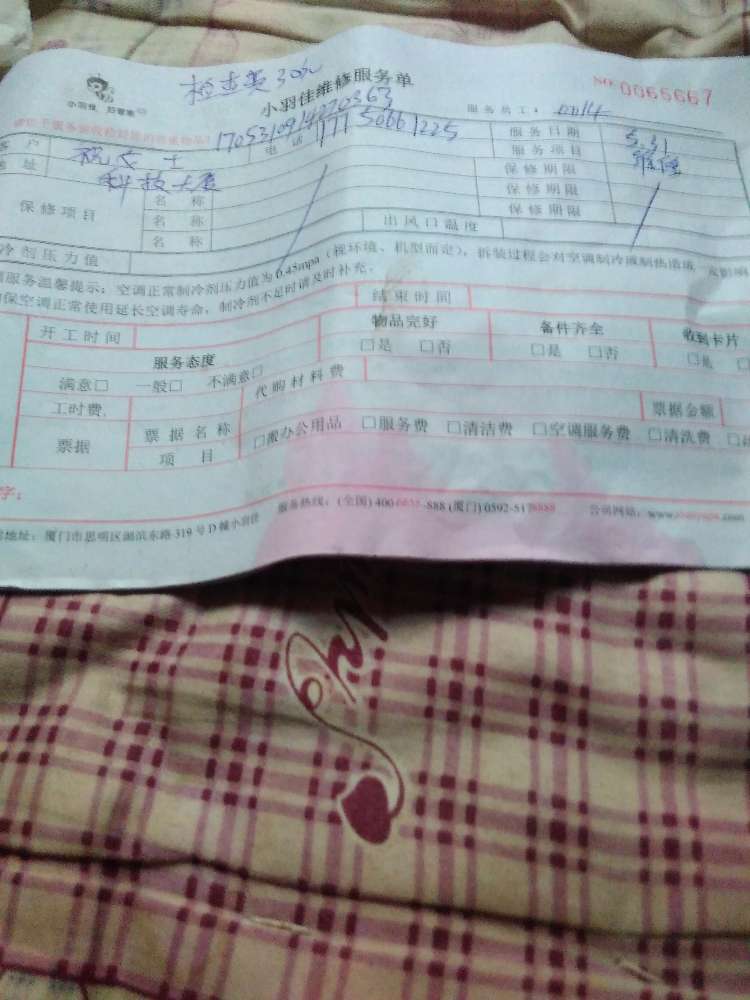 检查费30元
小羽佳维修服务单
NO 0065667
小羽佳 好管家
服务员工：00114
1705310914220363
客户 祝女士 电话 17750661225 服务日期 5.31
地址 科技大厦 服务项目 维修
保修项目
名称 保修期限
名称 保修期限
名称 保修期限
冷剂压力值 出风口温度
服务温馨提示：空调正常制冷剂压力值为0.45mpa（视环境、机型而定），拆装过程会对空调制冷或制热造成
保空调正常使用延长空调寿命，制冷剂不足时请及时补充。
开工时间 结束时间
服务态度 物品完好 备件齐全 收到卡片
满意□ 一般□ 不满意□ □是 □否 □是 □否 □是
工时费 代购材料费
票据 票据名称 票据金额
项目 □搬办公用品 □服务费 □清洁费 □空调服务费 □清洗费
字：
服务热线：(全国)400-6655-888 (厦门)0592-5178888 公司网站：
地址：厦门市思明区湖滨东路319号D幢小羽佳